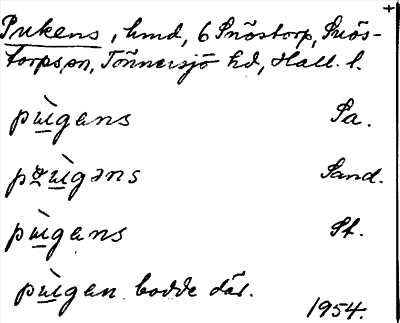 +
Pukens, hmd, 6 Snöstorp, Snös-
torps sn, Tönnersjö hd, Hall. l.
pùi̱gans Sa.
pu̱i̱gəns Sand.
pùi̱gans St.
pùi̱gan bodde där.
1954.